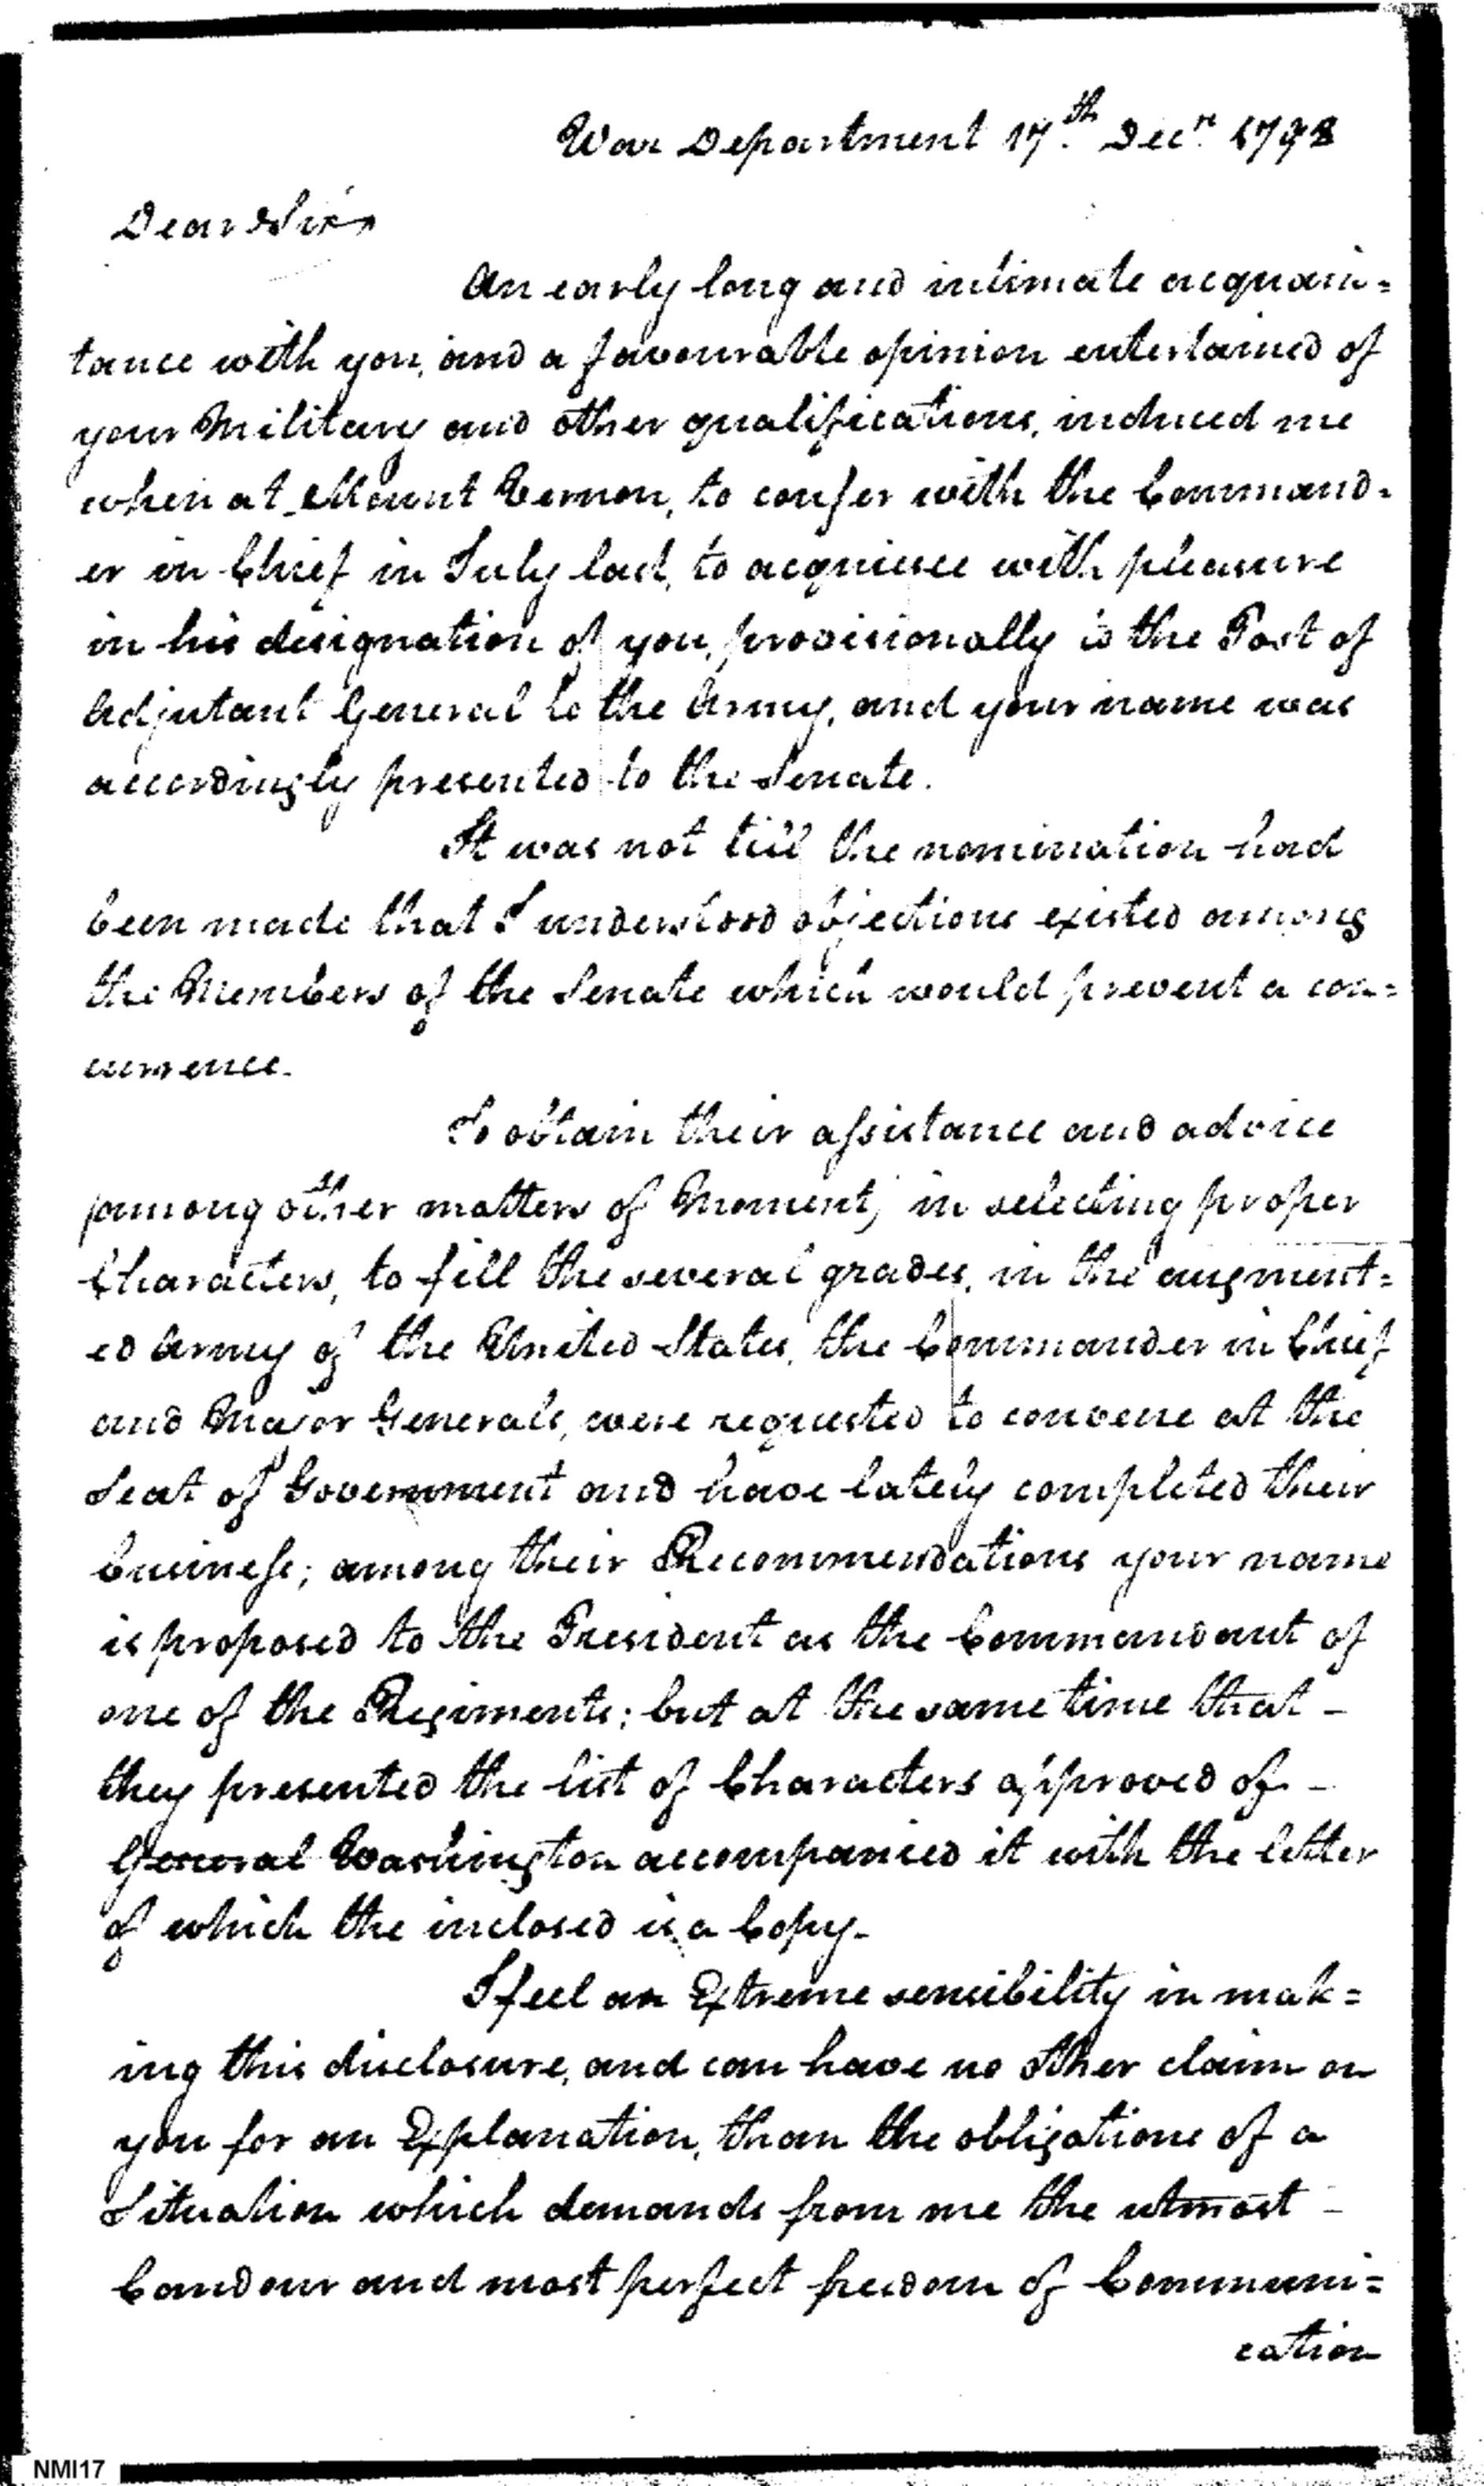 War Department 17th. Decr. 1798
Dear Sir,
An early long and intimate acquain=
tance with you, and a favourable opinion entertained of
your Military and other qualifications, induced me
when at Mount Vernon, to confer with the Command=
er in Chief in July last, to acquiesce with pleasure
in his designation of you, provisionally to the Post of
Adjutant General to the Army, and your name was
accordingly presented to the Senate.
It was not till the nomination had
been made that I understood objections existed among
the Members of the Senate which would prevent a con=
currence.
To obtain their assistance and advice
(among other matters of Moment) in selecting proper
Characters, to fill the several grades, in the augment=
ed Army of the United States, the Commander in Chief
and Major Generals, were requested to convene at the
Seat of Government and have lately completed their
business; among their Recommendations your name
is proposed to the President as the Commandant of
one of the Regiments; but at the same time that -
they presented the list of Characters approved of -
General Washington accompanied it with the letter
of which the inclosed is a Copy.
I feel an Extreme sensibility in mak=
ing this disclosure, and can have no other claim on
you for an Explanation, than the obligations of a
Situation which demands from me the utmost -
Candour and most perfect freedom of Communi=
cation
NMI17